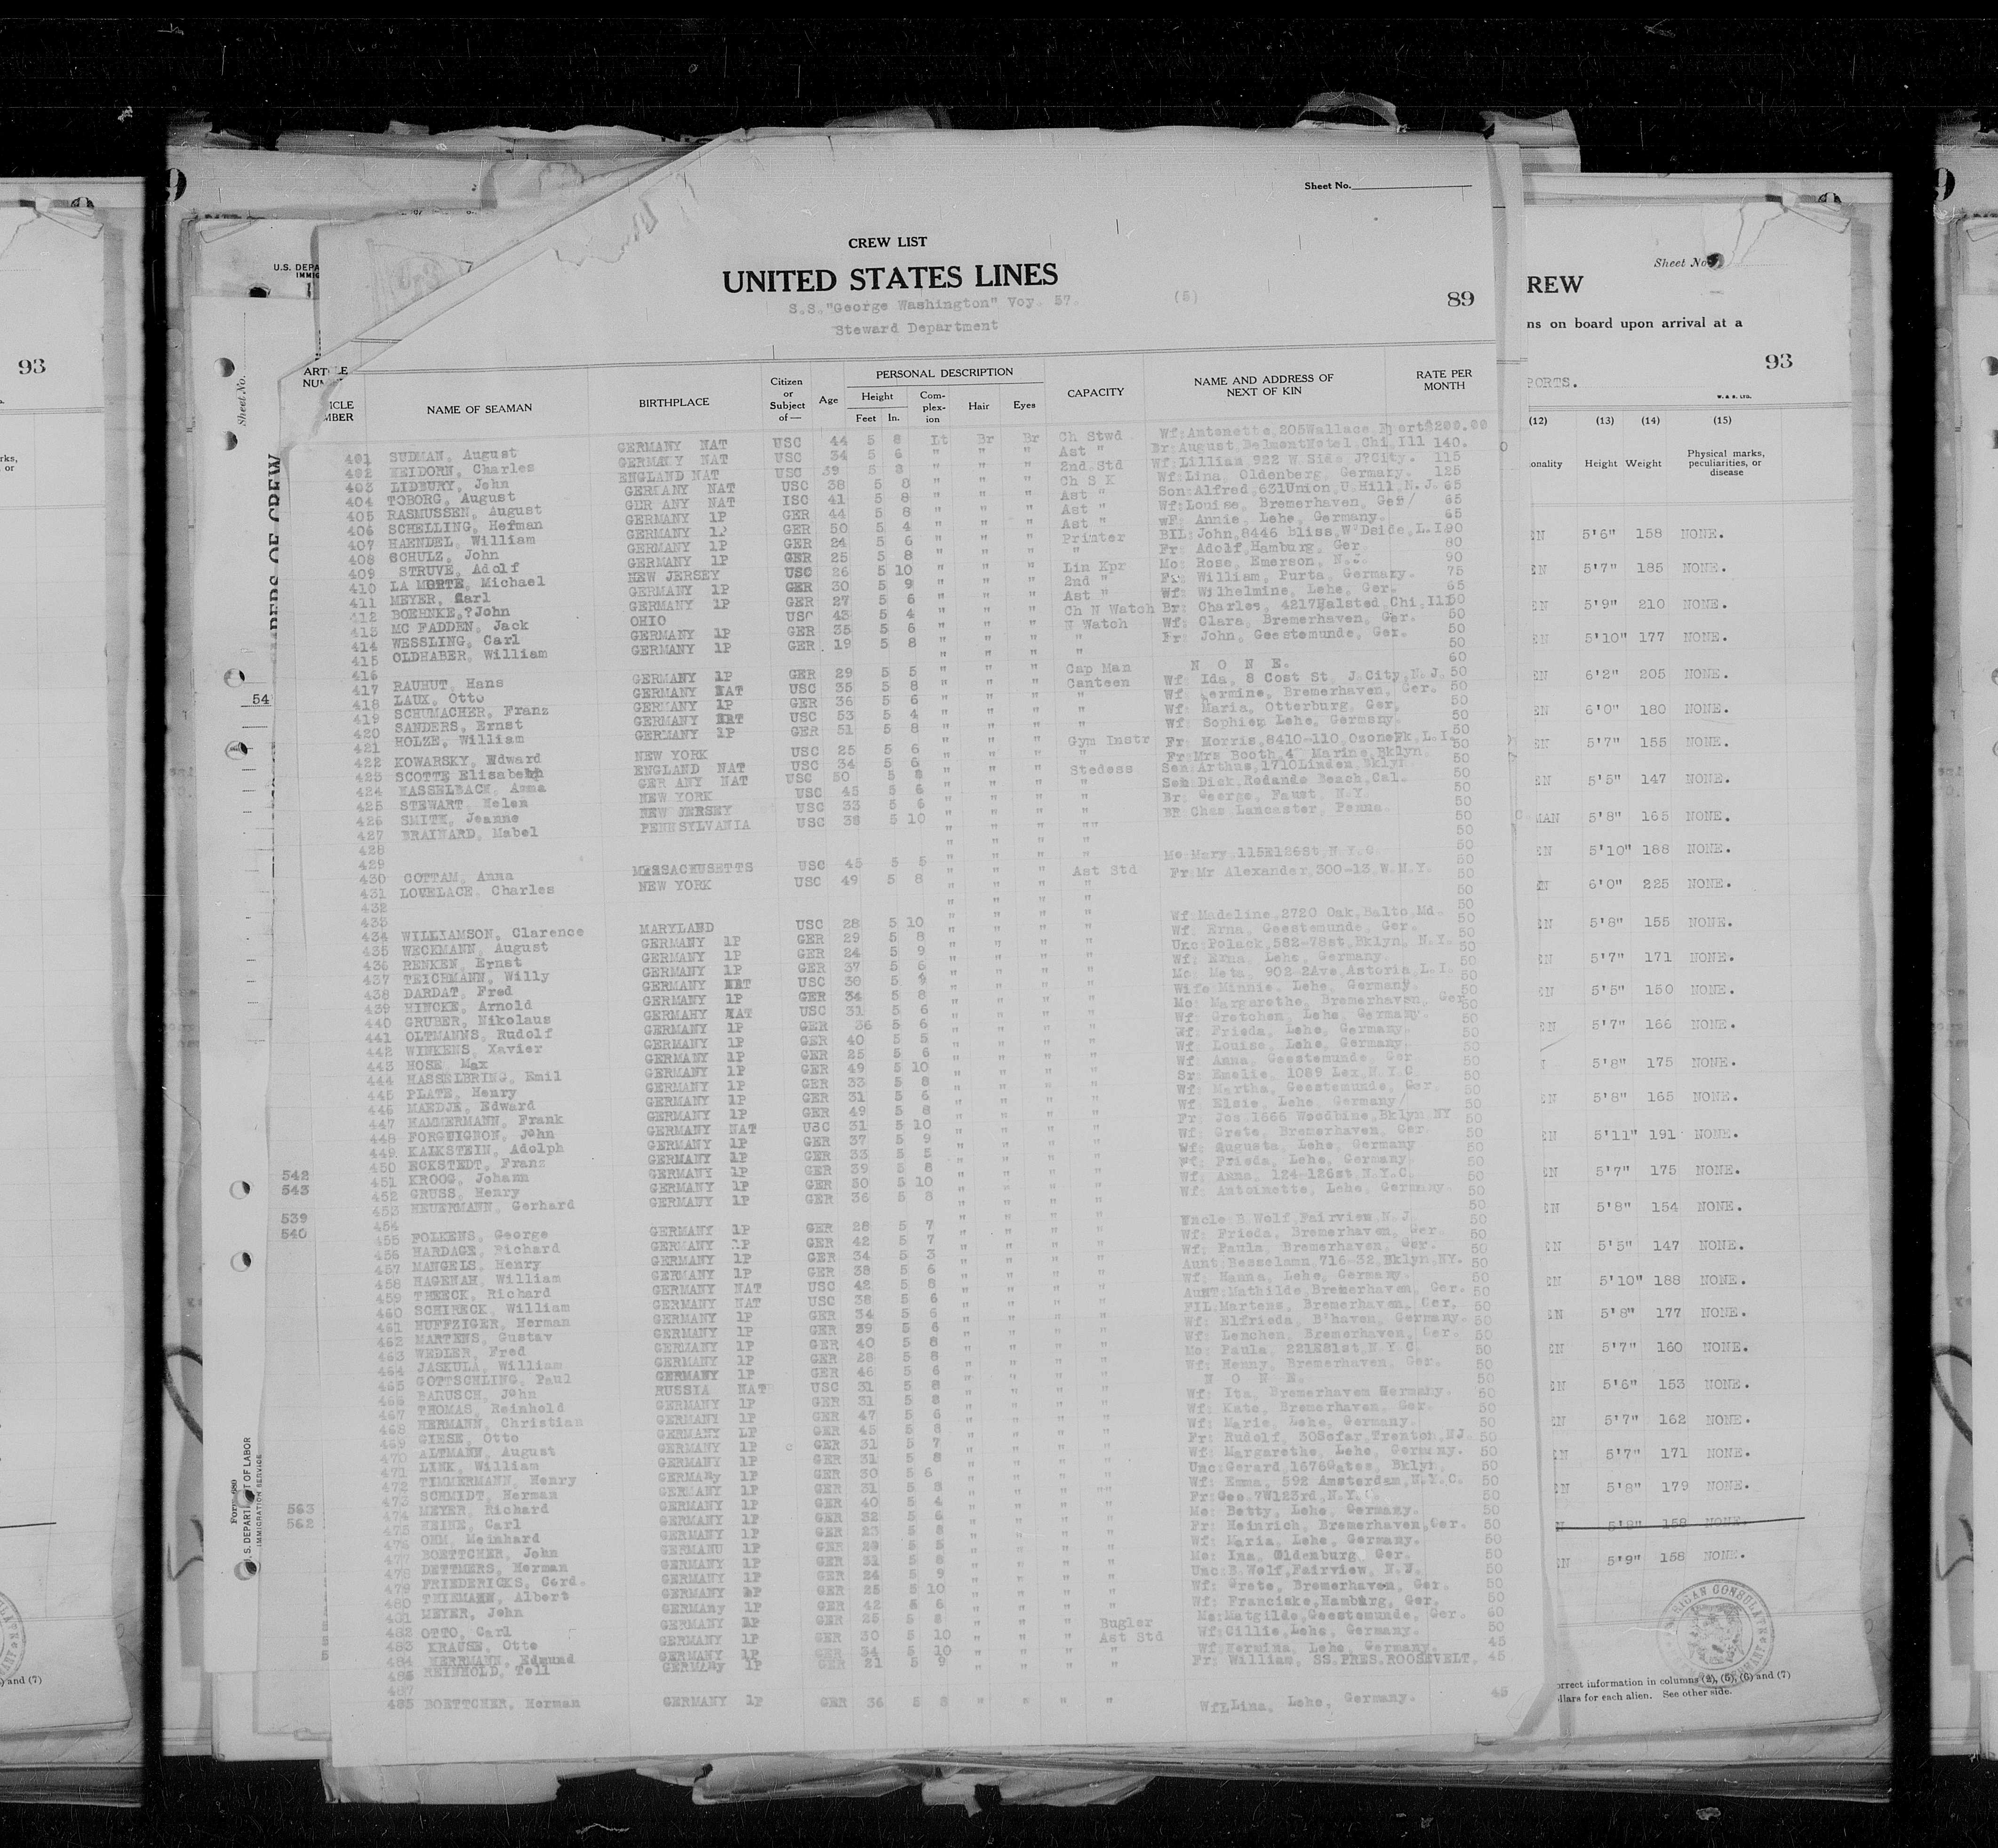 Sheet No.
CREW LIST
UNITED STATES LINES
S.S."George Washington" Voy. 57. (5)
89
Steward Department
ARTICLE NUMBER NAME OF SEAMAN BIRTHPLACE Citizen or Subject of— Age PERSONAL DESCRIPTION Height Feet In. Complexion Hair Eyes CAPACITY NAME AND ADDRESS OF NEXT OF KIN RATE PER MONTH
401 SUDMAN, August GERMANY NAT USC 44 5 8 Lt Br Br Ch Stwd Wf:Antonette,205Wallace $200.00
402 HEIDORN, Charles GERMANY NAT USC 34 5 6 " " " Ast " Br:August BelmontHotel Chi,Ill 140.
403 LIDBURY, John ENGLAND NAT USC 39 5 8 " " " 2nd Std Wf:Lillian,922 W Side J?City. 115
404 TOBORG, August GERMANY NAT USC 38 5 8 " " " Ch S K Wf:Lina, Oldenberg, Germany. 125
405 RASMUSSEN, August GER ANY NAT ISC 41 5 8 " " " Ast " Son:Alfred,631Union,U.Hill,N.J. 65
406 SCHELLING, Herman GERMANY 1P GER 44 5 8 " " " Ast " Wf:Louise, Bremerhaven, Ger/ 65
407 HAENDEL, William GERMANY 1P GER 50 5 4 " " " Ast " wF: Annie, Lehe, Germany. 65
408 SCHULZ, John GERMANY 1P GER 24 5 6 " " " Printer BIL:John,8446 bliss,W'Dside,L.I. 90
409 STRUVE, Adolf GERMANY 1P GER 25 5 8 " " " " Fr: Adolf,Hamburg, Ger. 80
410 LA MORTE, Michael NEW JERSEY USC 26 5 10 " " " Lin Kpr Mo: Rose, Emerson, N.J. 90
411 MEYER, Carl GERMANY 1P GER 30 5 9 " " " 2nd " Fr: William, Purta, Germany. 75
412 BOEHNKE,?John GERMANY 1P GER 27 5 6 " " " Ast " Wf: Wilhelmine, Lehe, Ger. 65
413 MC FADDEN, Jack OHIO USC 43 5 4 " " " Ch N Watch Br: Charles, 4217Halsted,Chi,Ill 60
414 WESSLING, Carl GERMANY 1P GER 35 5 6 " " " N Watch Wf: Clara, Bremerhaven, Ger. 50
415 OLDHABER, William GERMANY 1P GER 19 5 8 " " " " Fr: John, Geestemunde, Ger. 50
416 " " " " 50
417 RAUHUT, Hans GERMANY 1P GER 29 5 5 " " " Cap Man N O N E. 60
418 LAUX, Otto GERMANY NAT USC 35 5 8 " " " Canteen Wf: Ida, 8 Cost St, J.City,N.J. 50
419 SCHUMACHER, Franz GERMANY 1P GER 36 5 6 " " " " Wf: Hermine, Bremerhaven, Ger. 50
420 SANDERS, Ernst GERMANY NAT USC 53 5 4 " " " " Wf: Maria, Otterburg, Ger, 50
421 HOLZE, William GERMANY 1P GER 51 5 8 " " " " Wf: Sophie, Lehe, Germany. 50
422 KOWARSKY, Edward NEW YORK USC 25 5 6 " " " Gym Instr Fr: Morris,8410-110,OzonePk,L.I. 50
423 SCOTTE Elisabeth ENGLAND NAT USC 34 5 6 " " " Fr:Mrs Booth,4 Marine,Bklyn. 50
424 HASSELBACK, Anna GER ANY NAT USC 50 5 8 " " " Stedess Son:Arthur,1710Linden,Bklyn 50
425 STEWART, Helen NEW YORK USC 45 5 6 " " " " Son Dick,Redando Beach,Cal. 50
426 SMITH, Jeanne NEW JERSEY USC 33 5 6 " " " " Br: George, Faust, N.Y. 50
427 BRAINARD, Mabel PENNSYLVANIA USC 38 5 10 " " " " BR Chas Lancaster, Penna. 50
428 " " " "" 50
429 " " " " 50
430 COTTAM, Anna MASSACHUSETTS USC 45 5 5 " " " " Mo:Mary,115E126St,N.Y.C. 50
431 LOVELACE, Charles NEW YORK USC 49 5 8 " " " Ast Std Fr:Mr Alexander,300-13,W.N.Y. 50
432 " " " " 50
433 " " " " 50
434 WILLIAMSON, Clarence MARYLAND USC 28 5 10 " " " " Wf:Madeline,2720 Oak,Balto,Md. 50
435 WECKMANN, August GERMANY 1P GER 29 5 8 " " " " Wf: Erna, Geestemunde, Ger. 50
436 RENKEN, Ernst GERMANY 1P GER 24 5 9 " " " " Unc:Polack,582-78st,Bklyn, N.Y. 50
437 TEICHMANN, Willy GERMANY 1P GER 37 5 6 " " " " Wf: Erna, Lehe, Germany. 50
438 DARDAT, Fred GERMANY NAT USC 30 5 4 " " " " Mo: Meta, 902-2Ave,Astoria,L.I. 50
439 HINCKE, Arnold GERMANY 1P GER 34 5 8 " " " " Wife Minnie, Lehe, Germany. 50
440 GRUBER, Nikolaus GERMAHY NAT USC 31 5 6 " " " " Mo: Margarethe, Bremerhaven, Ger 50
441 OLTMANNS, Rudolf GERMANY 1P GER 36 5 6 " " " " Wf: Gretchen, Lehe, Germany. 50
442 WINKENS, Xavier GERMANY 1P GER 40 5 5 " " " " Wf: Frieda, Lehe, Germany. 50
443 HOSE, Max GERMANY 1P GER 25 5 6 " " " " Wf: Louise, Lehe, Germany 50
444 HASSELBRING, Emil GERMANY 1P GER 49 5 10 " " " " Wf: Anna, Geestemunde, Ger 50
445 PLATE, Henry GERMANY 1P GER 33 5 8 " " " " Sr: Emelie, 1089 Lex,N.Y.C. 50
446 MAEDJE, Edward GERMANY 1P GER 31 5 6 " " " " Wf: Martha, Geestemunde, Ger. 50
447 HAMMERMANN, Frank GERMANY 1P GER 49 5 8 " " " " Wf: Elsie, Lehe, Germany/ 50
448 FORGUIGNON, John GERMANY NAT USC 31 5 10 " " " " Fr: Jos.1666 Woodbine,Bklyn NY 50
449 KALKSTEIN, Adolph GERMANY 1P GER 37 5 9 " " " " Wf: Grete, Bremerhaven, Ger. 50
450 ECKSTEDT, Franz GERMANY 1P GER 33 5 5 " " " " Wf: Augusta, Lehe, Germany 50
542 451 KROOG, Johann GERMANY 1P GER 39 5 8 " " " " Wf: Frieda, Lehe, Germany. 50
543 452 GRUSS, Henry GERMANY 1P GER 50 5 10 " " " " Wf: Anna, 124-126st,N.Y.C. 50
453 HEUERMANN, Gerhard GERMANY 1P GER 36 5 8 " " " " Wf: Antoinette, Lehe, Germany. 50
539 454 " " " " 50
540 455 FOLKENS, George GERMANY 1P GER 28 5 7 " " " " Uncle:B.Wolf,Fairview,N.J. 50
456 HARDAGE, Richard GERMANY 1P GER 42 5 7 " " " " Wf: Frieda, Bremerhaven, Ger. 50
457 MANGELS, Henry GERMANY 1P GER 34 5 3 " " " " Wf: Paula, Bremerhaven, Ger. 50
458 HAGENAH, William GERMANY 1P GER 38 5 6 " " " " Aunt:Besselamn,716-32,Bklyn,NY. 50
459 THEECK, Richard GERMANY NAT USC 42 5 8 " " " " Wf: Hanna, Lehe, Germany. 50
460 SCHIRECK, William GERMANY NAT USC 38 5 6 " " " " AuNT:Mathilde,Bremerhaven, Ger. 50
461 HUFFZIGER, Herman GERMANY 1P GER 34 5 6 " " " " FIL:Martens, Bremerhaven, Ger. 50
462 MARTENS, Gustav GERMANY 1P GER 39 5 6 " " " " Wf: Elfrieda, B'haven, Germany. 50
463 WEDLER, Fred GERMANY 1P GER 40 5 8 " " " " Wf: Lenchen, Bremerhaven, Ger. 50
464 JASKULA, William GERMANY 1P GER 28 5 8 " " " " Mo: Paula, 221E81st,N.Y.C. 50
465 GOTTSCHLING, Paul GERMANY 1P GER 46 5 6 " " " " Wf: Henny, Bremerhaven, Ger. 50
466 BARUSCH, John RUSSIA NAT USC 31 5 8 " " " " N O N E. 50
467 THOMAS, Reinhold GERMANY 1P GER 31 5 8 " " " " Wf: Ita, Bremerhaven Germany. 50
468 HERMANN, Christian GERMANY 1P GER 47 5 6 " " " " Wf: Kate, Bremerhaven, Ger. 50
469 GIESE, Otto GERMANY LP GER 45 5 8 " " " " Wf: Marie, Lehe, Germany. 50
470 ALTMANN, August GERMANY 1P GER 31 5 7 " " " " Fr: Rudolf, 30Sofar,Trenton,NJ. 50
471 LINK, William GERMANY 1P GER 31 5 8 " " " " Wf: Margarethe, Lehe, Germany. 50
472 TIMMERMANN, Henry GERMANy 1P GER 30 5 6 " " " " Unc:Gerard,1676Gates, Bklyn. 50
473 SCHMIDT, Herman GERMANY 1P GER 31 5 8 " " " "" Wf: Emma, 592 Amsterdam,N.Y.C. 50
563 474 MEYER, Richard GERMANY 1P GER 40 5 4 " " " " Fr:Geo.7W123rd,N.Y.C. 50
562 475 HEINE, Carl GERMANY 1P GER 32 5 6 " " " " Mo: Betty, Lehe, Germany. 50
476 OHM, Meinhard GERMANY 1P GER 23 5 8 " " " " Fr: Heinrich, Bremerhaven,Ger. 50
477 BOETTCHER, John GERMANU 1P GER 28 5 5 " " " " Wf: Maria, Lehe, Germany. 50
478 DETTMERS, Herman GERMANY 1P GER 31 5 8 " " " " Mo: Ina, Oldenburg, Ger. 50
479 FRIEDERICKS, Cord. GERMANY 1P GER 24 5 9 " " " " Unc:B.Wolf,Fairview, N.J. 50
480 THIEMANN, Albert GERMANY 1P GER 25 5 10 " " " " Wf: Grete, Bremerhaven, Ger. 50
481 MEYER, John GERMANy 1P GER 42 5 6 " " " " Wf: Franciske,Hamburg, Ger. 50
482 OTTO, Carl GERMANY 1P GER 25 5 8 " " " Bugler Mo:Matgilde,Geestemunde, Ger. 60
483 KRAUSE, Otto GERMANY 1P GER 30 5 10 " " " Ast Std Wf:Cillie,Lehe, Germany. 50
484 HERRMANN, Edmund GERMANY 1P GER 34 5 10 " " " " Wf:Hermina, Lehe, Germany. 45
486 REINHOLD, Tell GERMANy 1P GER 21 5 9 " " " " Fr: William, SS.PRES.ROOSEVELT, 45
487
485 BOETTCHER, Herman GERMANY 1P GER 36 5 8 " " " " Wf:Lina, Lehe, Germany. 45
93
U.S. DEPA
IMMIG
Sheet No.
MBERS OF CREW
54
Form 689
U.S. DEPARTMENT OF LABOR
IMMIGRATION SERVICE
Sheet No.
REW
ns on board upon arrival at a
93
PORTS.
(12) (13) (14) (15)
onality Height Weight Physical marks, peculiarities, or disease
EN 5'6" 158 NONE.
EN 5'7" 185 NONE.
EN 5'9" 210 NONE.
EN 5'10" 177 NONE.
EN 6'2" 205 NONE.
EN 6'0" 180 NONE.
EN 5'7" 155 NONE.
EN 5'5" 147 NONE.
MAN 5'8" 165 NONE.
EN 5'10" 188 NONE.
EN 6'0" 225 NONE.
EN 5'8" 155 NONE.
EN 5'7" 171 NONE.
EN 5'5" 150 NONE.
EN 5'7" 166 NONE.
N 5'8" 175 NONE.
EN 5'8" 165 NONE.
EN 5'11" 191 NONE.
EN 5'7" 175 NONE.
EN 5'8" 154 NONE.
EN 5'5" 147 NONE.
EN 5'10" 188 NONE.
EN 5'8" 177 NONE.
EN 5'7" 160 NONE.
EN 5'6" 153 NONE.
EN 5'7" 162 NONE.
EN 5'7" 171 NONE.
EN 5'8" 179 NONE.
N 5'8" 158 NONE.
EN 5'9" 158 NONE.
AMERICAN CONSULATE
orrect information in columns (2), (5), (6) and (7)
ollars for each alien. See other side.
) and (7)